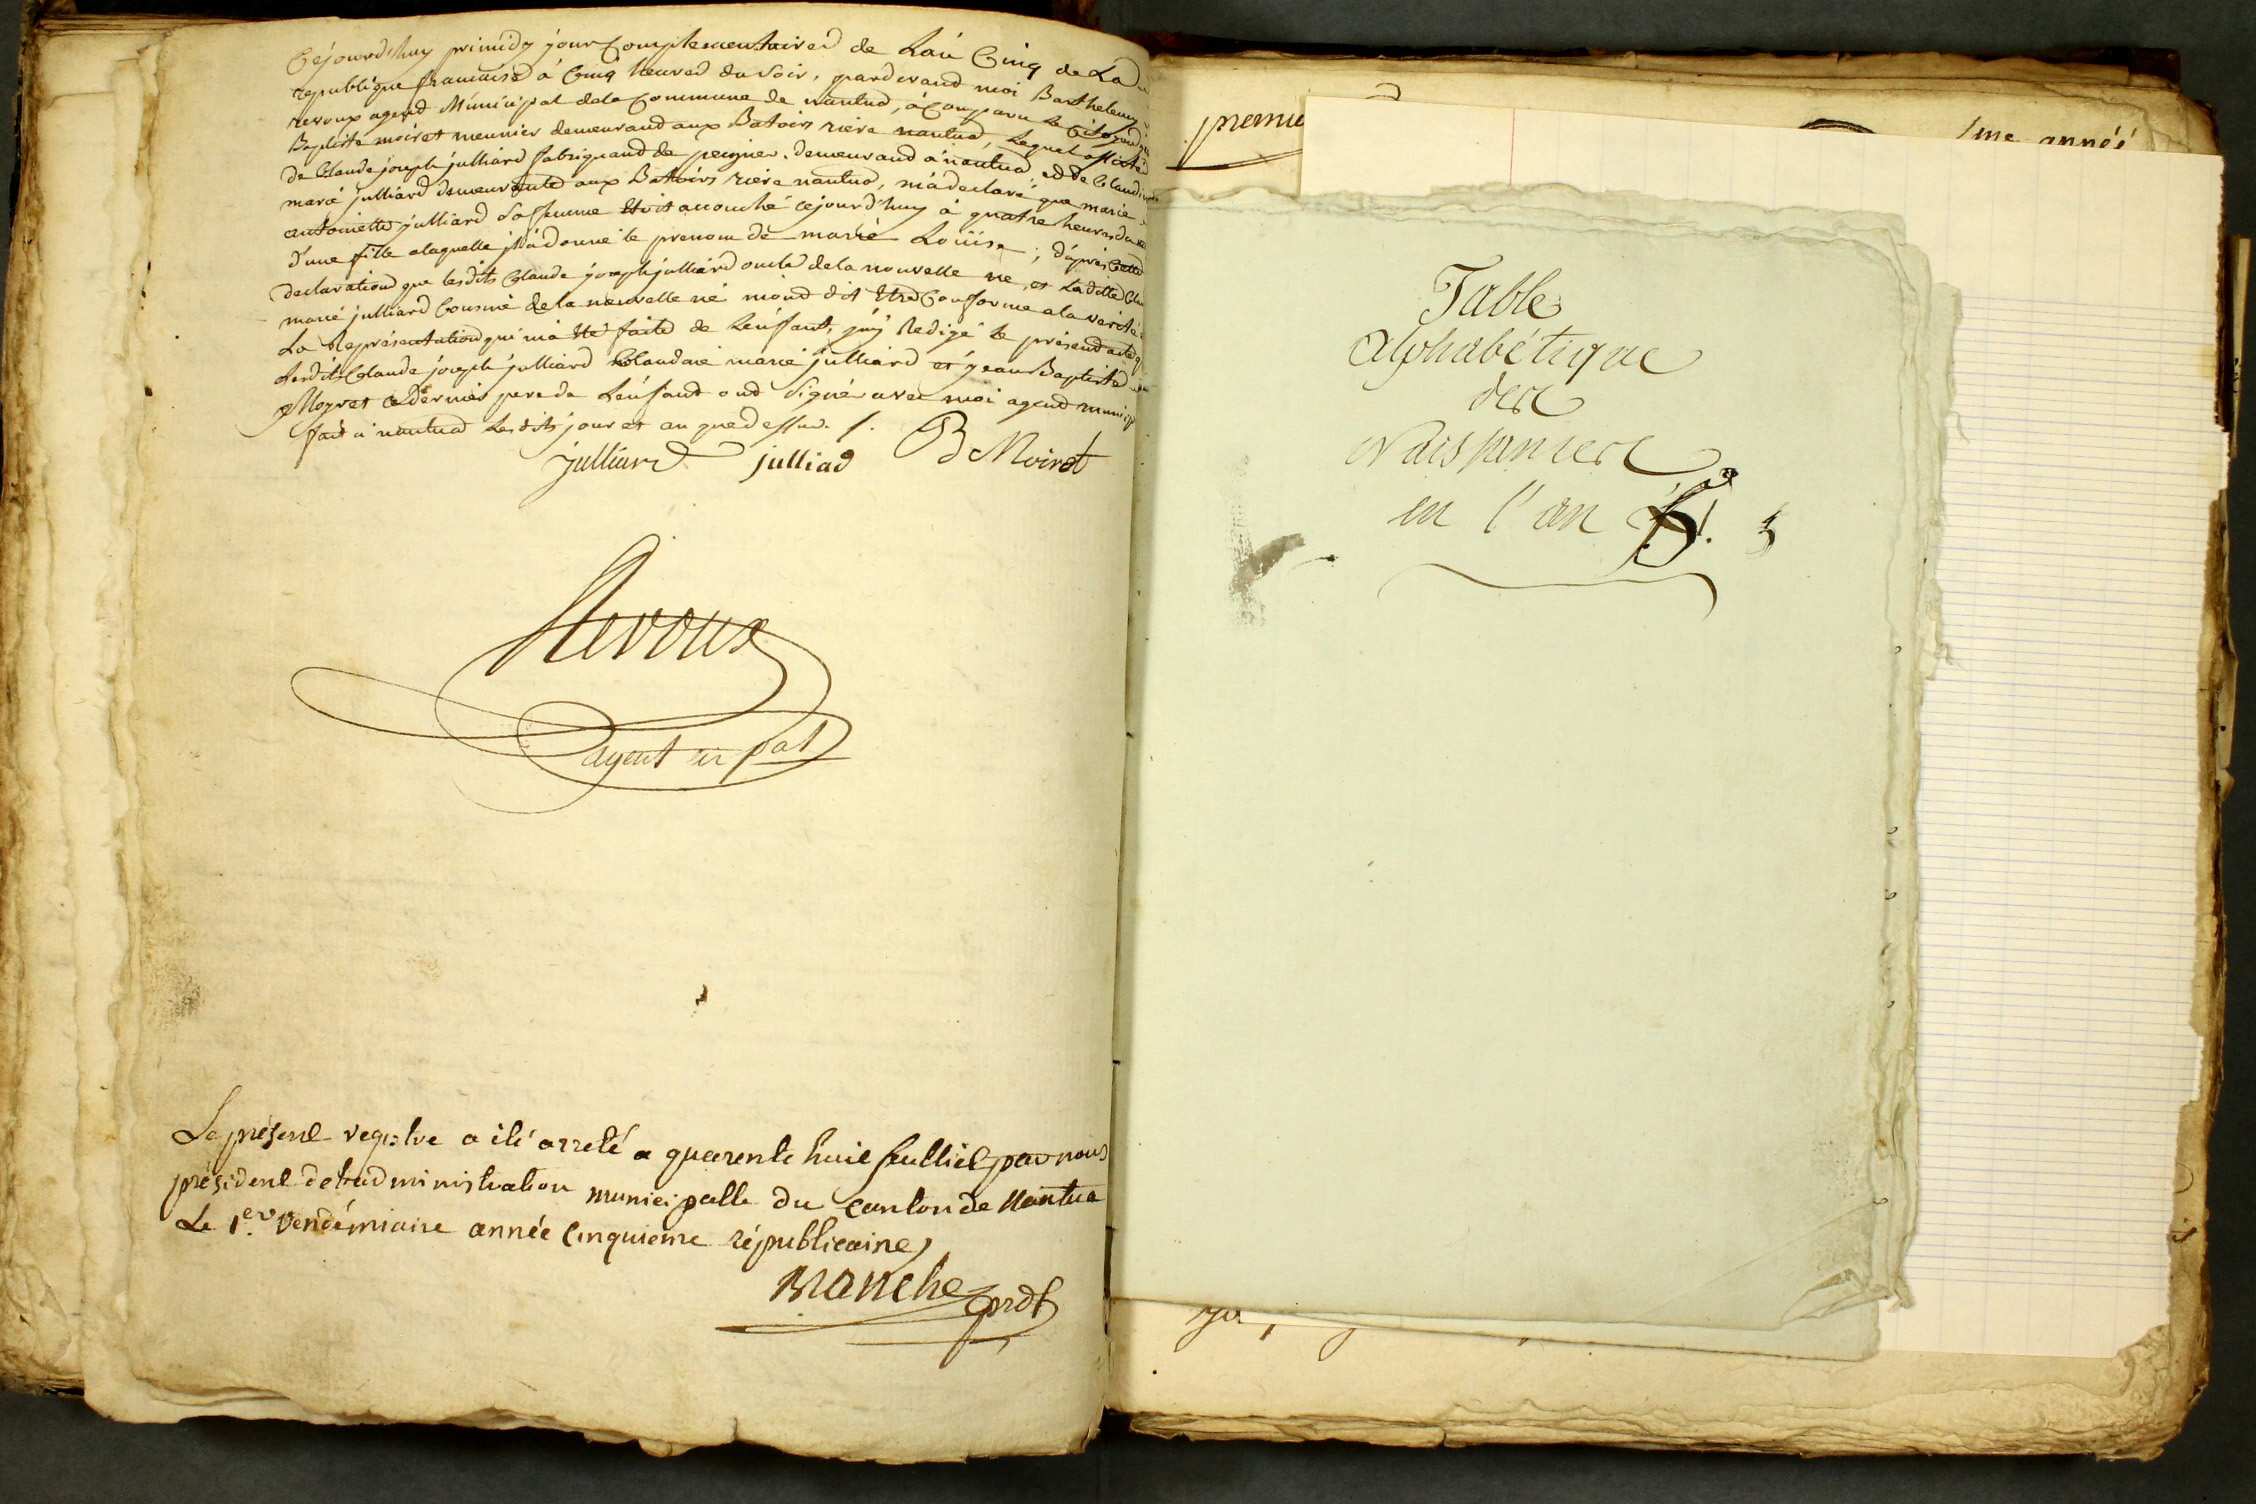 Cejourd'huy primidy jour Complementaired de Lan Cinq de La
republique francaised a Cinq heured du Soir, pardevand moi Barthelemy
revoux agend Municipal dela Commune de nantuad, a Comparu Le Citoyend
Baptiste moiret meunier demeurand aux Batoirs riere nantuad, Lequel assisté
de Claude joseph julliard fabriquand de peignes demeurand a nantuad, ed de Claudine
marie julliard demeurante aux Batoirs riere nantuad, m'a declaré que marie
antoinette julliard Sa femme Etoit accouché cejourd'huy à quatre heures du
d'une fille alaquelle il a donné le prenom de marie Louise; d'apres Cette
declaration que lesdits Claude joseph julliard oncle dela nouvelle né, et Ladite
marie julliard Cousine de la nouvelle né m'ond dit Etre Conforme a la verité
La Représentation qui m'a été faite de Lenfant, j'ay Redigé le présend acte q
Lesdits Claude joseph julliard Claudine marie julliard et jean Baptiste
Moyret ce dernier pere de Lenfant ond Signé avec moi agend municip
fait a nantuad Lesdits jour et an que dessus. /.
julliard julliad B Moiret
Revoux
agent m pal
Le présent registre a été arreté a quarente huit feulliets par nous
président de l'administration municipalle du canton de Nantua
Le 1.er Vendémiaire année Cinquieme républicaine
Manche prdt
premie
me année
Table
alphabétique
des
Naissances
en l'an 5